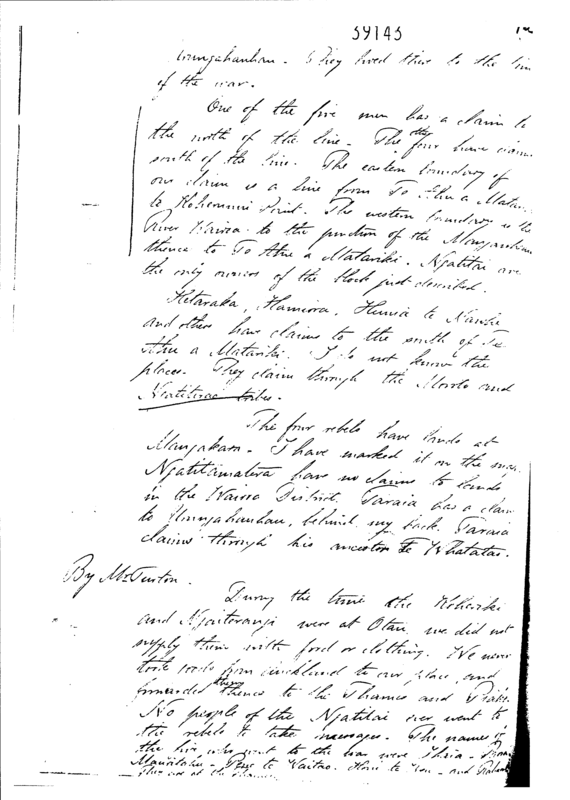 59143
They lived there to the time
of the war.
One of the five men has a claim to
the north of the line. The other four have claims
south of the line. The eastern boundary of
our claim is a line from Te Ahu a Matar
to Kohemimi Point. The western boundary is the
River Wairoa to the junction of the
thence to Te Ahu a Matariki. Ngatitai are
the only owners of the block just described.
Hetaraka, Hamiora, Huria te
and others have claims to the south of Te
Ahu a Matariki. I do not know the
places. They claim through the and
tribes.
The four rebels have lands at
I have marked it on the map.
Ngatitamatera have no claims to lands
in the Wairoa District. Taraia has a claim
to Urungahauhau, behind my back. Taraia
claims through his ancestor Te Whatatau.
By Mr Turton.
During the time the Koheriki
and were at Otau, we did not
supply them with food or clothing. We never
took goods from Auckland to our place, and
forwarded them thence to the Thames and
No people of the Ngatitai ever went to
the rebels to take messages. The names of
the five who went to the war were Ihaia